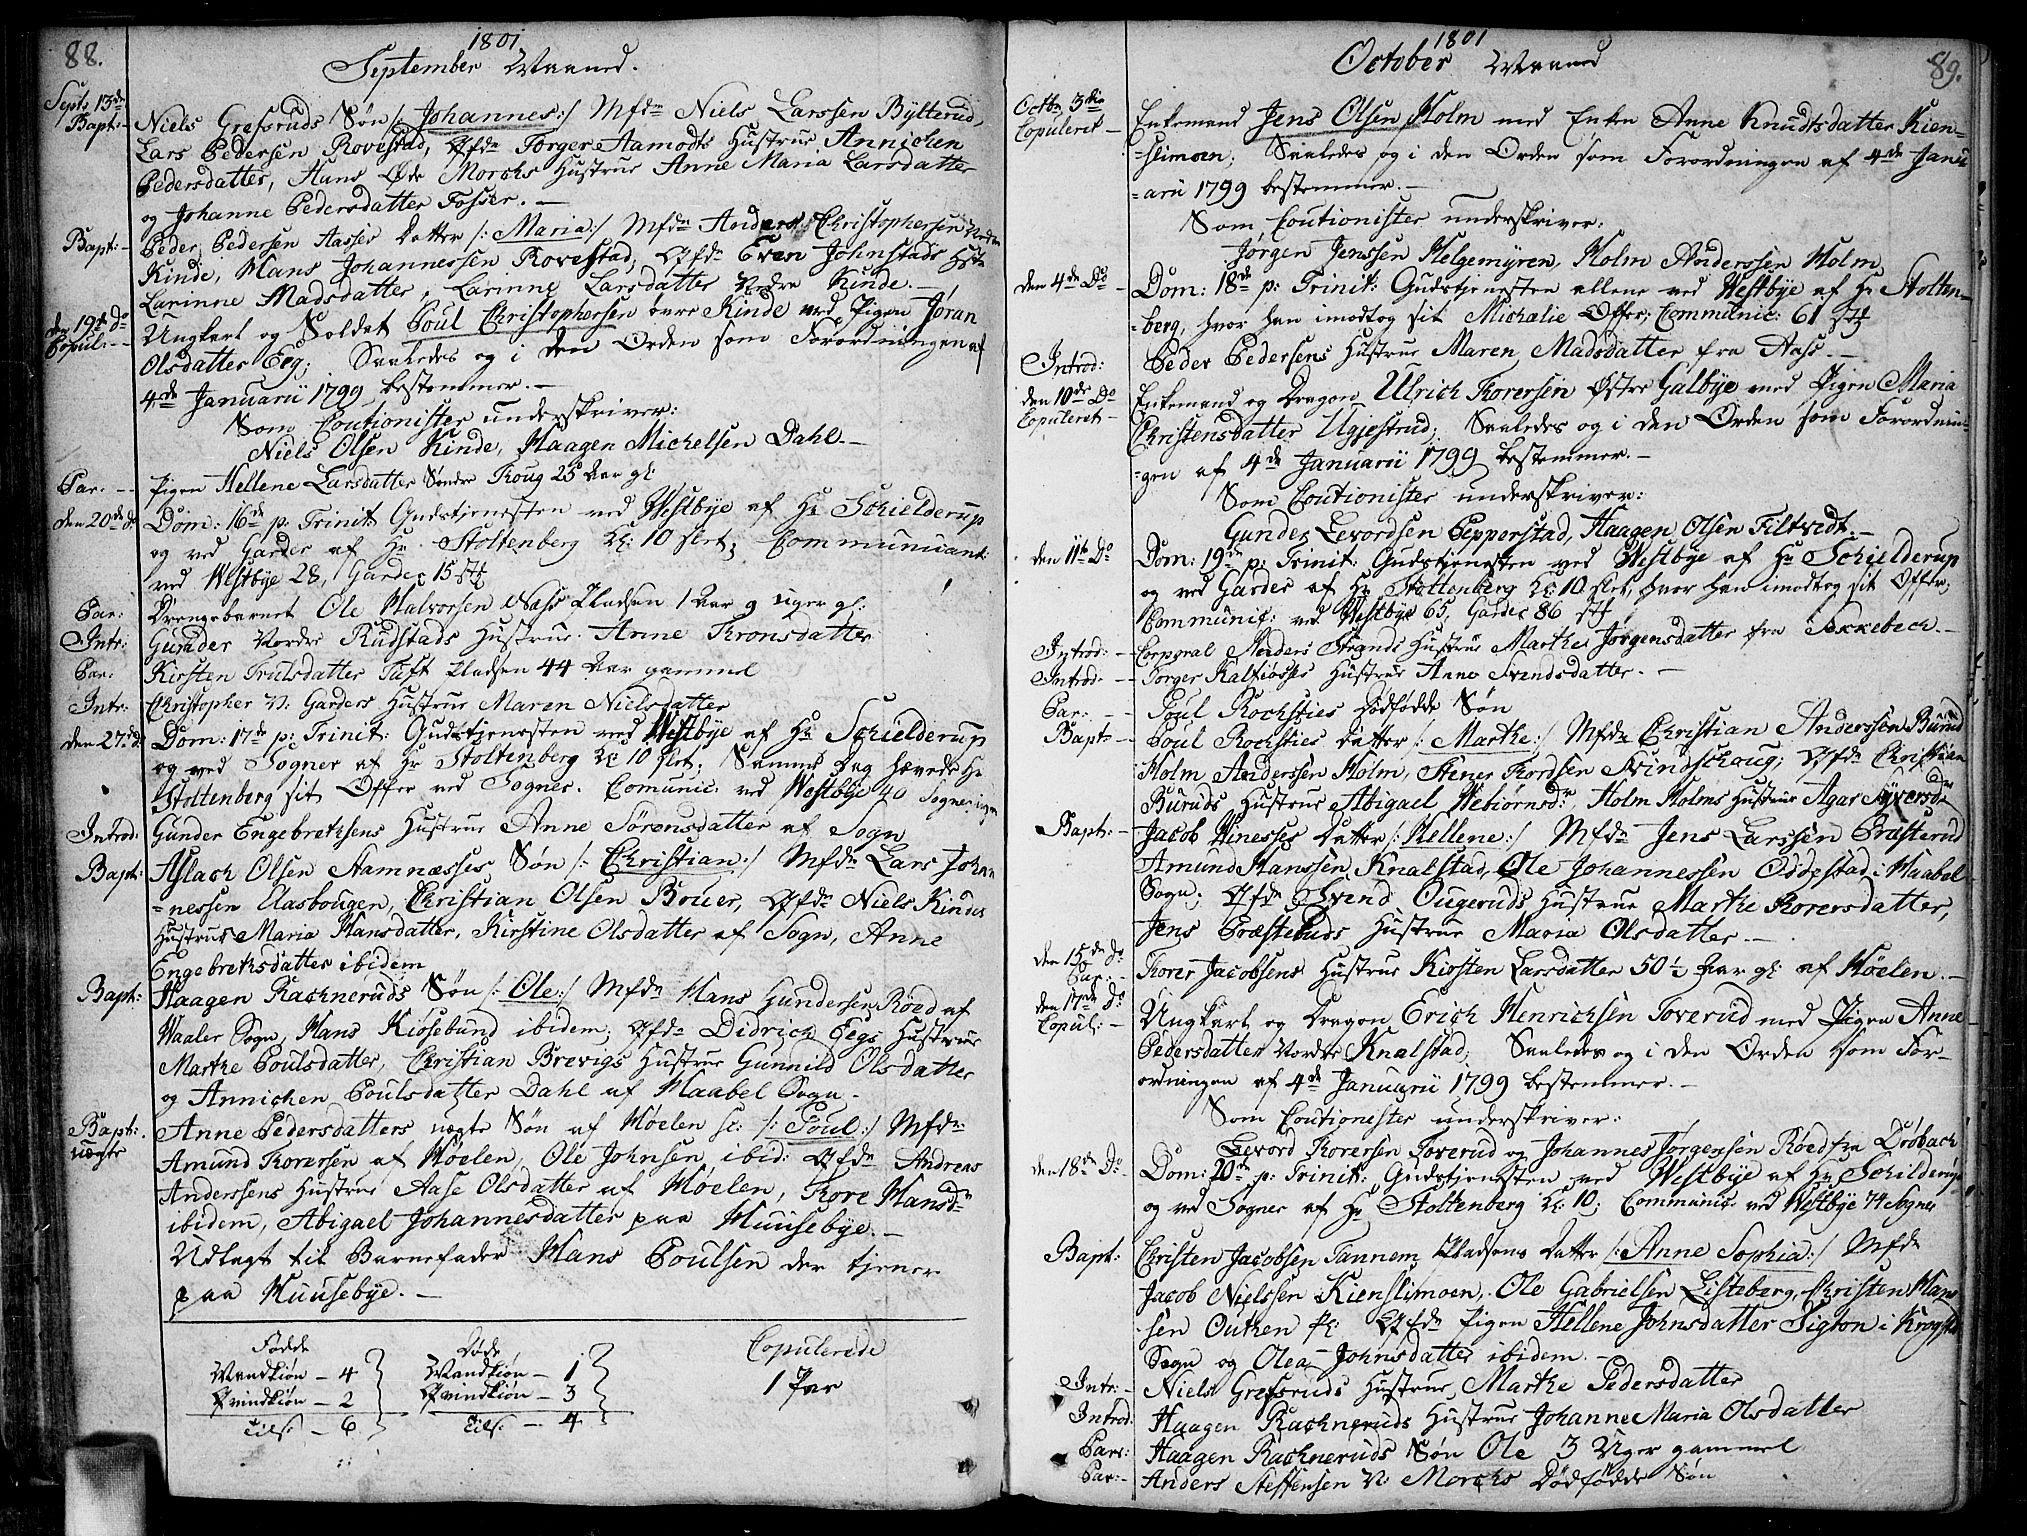 88.
1801
September Maaned.
Septs 13de
Bapt: - Niels Grefsruds Søn /: Johannes :/ Mfdr Niels Larssen Bÿlterud,
Lars Pedersen Rovestad, Qfdr Torger Aamodts Hustrue Annichen
Pedersdatter, Hans Øde Morchs Hustrue Anne Maria Larsdatter
og Johanne Pedersdatter Fosser. -
Bapt: - Peder Pedersen Aasses Datter /: Maria :/ Mfdr Anders Christophersen Nedre
Kinde, Hans Johannessen Rovestad, Qfdr Even Johnstads Hstr
Larinne Madsdatter, Larinne Larsdatter Nedre Kinde. -
den 19de Do
Copul: - - Ungkarl og Soldat Poul Christophersen øvre Kinde med Pigen Joran
Olsdatter Eeg; Saaledes og i den Orden som Forordningen af
4de Januarii 1799 bestemmer. -
Som Coutionister underskriver:
Niels Olsen Kinde, Haagen Michelsen Dahl. -
Par: - - Pigen Hellene Larsdatter Søndre Kroug 25 Aar gl:
den 20de do Dom: 16de p: Trinit: Gudstjenesten ved Westbÿe af Hr Schielderup
og ved Garder af Hr Stoltenberg Kl: 10 slet; Communicant:
ved Westbÿe 28, Garder 15 st
Par: Drengebarnet Ole Halvorsen Pladsen 1 Aar 9 Uger gl:
Intr: Gunder Nordre Rudstads Hustrue Anne Kronsdatter
Par: Kirsten Trulsdatter Tuft Pladsen 44 Aar gammel
Intr: Christopher N: Garders Hustrue Maren Nielsdatter
den 27de do Dom: 17de p: Trinit: Gudstjenesten ved Westbÿe af Hr Schielderup
og ved Sogner af Hr Stoltenberg Kl: 10 slet. Samme Dag hævede Hr
Stoltenberg sit Offer ved Sogner. Comunic: ved Westbÿe 40 Sogner ingen
Introd: Gunder Engebrethsens Hustrue Anne Sörensdatter af Sogn
Bapt: Aslach Olsen Hamnæsses Søn /: Christian :/ Mfdr Lars Johan
=nessen Aasbougen, Christian Olsen Bruer, Qfdr Niels Kindes
Hustrue Maria Hansdatter, Kirstine Olsdatter af Sogn, Anne
Engebrethsdatter ibidem
Bapt: Haagen Rachneruds Søn /: Ole :/ Mfdr Hans Gundersen Röed af
Waaler Sogn, Hans Kiosebund ibidem; Qfdr Didrich Eegs Hustrue
Marthe Poulsdatter, Christian Brevigs Hustrue Gunnild Olsdatter
og Annichen Poulsdatter Dahl af Haabel Sogn.
Bapt:
uægte Anne Pedersdatters uægte Søn af Möelen /: Poul :/ Mfdr
Amund Torersen af Möelen, Ole Johnsen ibid: Qfdr Andreas
Anderssens Hustrue Aase Olsdatter af Möelen, Tore Hansdr
ibidem, Abigael Johannesdatter paa Huusebÿe. -
Udlagt til Barnefader Hans Poulsen der tjener
paa Huusebÿe. -
Födde Döde Copulerede
Mandkiön - 4 Mandkiön - 1 1 Par
Qvindkiön - 2 Qvindkiön - 3
Tils: - 6 Tils: - 4
89.
1801
October Maaned
Octbr 3die
Copuleret - Enkemand Jens Olsen Holm med Enken Anne Knudtsdatter Kien=
=slimoen; Saaledes og i den Orden som Forordningen af 4de Janu
=arii 1799 bestemmer. -
Som Coutionister underskriver:
Jørgen Jenssen Helgemÿren, Holm Anderssen Holm
den 4de Do - Dom: 18de p: Trinit: Gudstjenesten allene ved Westbÿe af Hr Stolten=
=berg, hvor han imodtog sit Michælie Offer; Communic: 61 st
Introd: Peder Pedersens Hustrue Maren Madsdatter fra Aass. -
den 10de Do
Copuleret - Enkemand og Dragon Ulrich Torersen Østre Galbÿe med Pigen Maria
Christensdatter Ugjestrud; Saaledes og i den Orden som Forordnin=
=gen af 4de Januarii 1799 bestemmer. -
Som Coutionister underskriver:
Gunder Levordsen Pepperstad, Haagen Olsen Filtvidt. -
den 11te Do Dom: 19de p: Trinit: Gudstjenesten ved Westbÿe af Hr Schielderup
og ved Garder af Hr Stoltenberg Kl: 10 slet, hvor han imodtog sit Offer,
Communic: ved Westbÿe 65, Garder 86 st
Introd: - Corporal Anders Strands Hustrue Marthe Jørgensdatter fra Sekkebech. -
Introd: - - Torger Kalfiösses Hustrue Anne Svendsdatter. -
Par: - - Poul Rochsties Dödfödde Søn
Bapt: Poul Rochsties Datter /: Marthe :/ Mfdr Christian Anderssen Burud
Holm Anderssen Holm, Stener Tordsen Svindschoug; Qfdr Christian
Buruds Hustrue Abigael Webiörnsdr, Holm Holms Hustrue Agar Sÿversdr
Bapt: - Jacob Winesses Datter /: Hellene :/ Mfdr Jens Larssen Præsterud
Amund Hanssen Knalstad, Ole Johannessen Oddestad i Haabel
Sogn; Qfdr Svend Ougeruds Hustrue Marthe Torersdatter,
Jens Præsteruds Hustrue Maria Olsdatter. -
den 15de do
Par: - Torer Jacobsens Hustrue Kirsten Larsdatter 50½ Aar gl: af Möelen. -
den 17de Do
Copul: - Ungkarl og Dragon Erich Henrichsen Toverud med Pigen Anne
Pedersdatter Nordre Knalstad; Saaledes og i den Orden som For=
ordningen af 4de Januarii 1799 bestemmer. -
Som Coutionister underskriver:
Levord Torersen Toverud og Johannes Jørgenssen Röed fra Dröbach
den 18de Do Dom: 20de p: Trinit: Gudstjenesten ved Westbÿe af Hr Schilderup
og ved Sogner af Hr Stoltenberg Kl: 10; Communic: ved Westbÿe 74 Sogner
Bapt: Christen Jacobsen Tannem Pladsens Datter /: Anne Sophia :/ Mfdr
Jacob Nielssen Kienslimoen, Ole Gabrielsen Listeberg, Christen Han
sen Outhen Qfdr Pigen Hellene Johnsdatter Sigton i Krogstad
Sogn og Olea Johnsdatter ibidem. -
Intr: - Niels Grefsruds Hustrue Marthe Pedersdatter
Introd: Haagen Rachneruds Hustrue Johanne Maria Olsdatter
Par: Haagen Rachneruds Søn Ole 3 Uger gammel
Par: - Anders Steffensen N: Morchs Dödfödde Søn